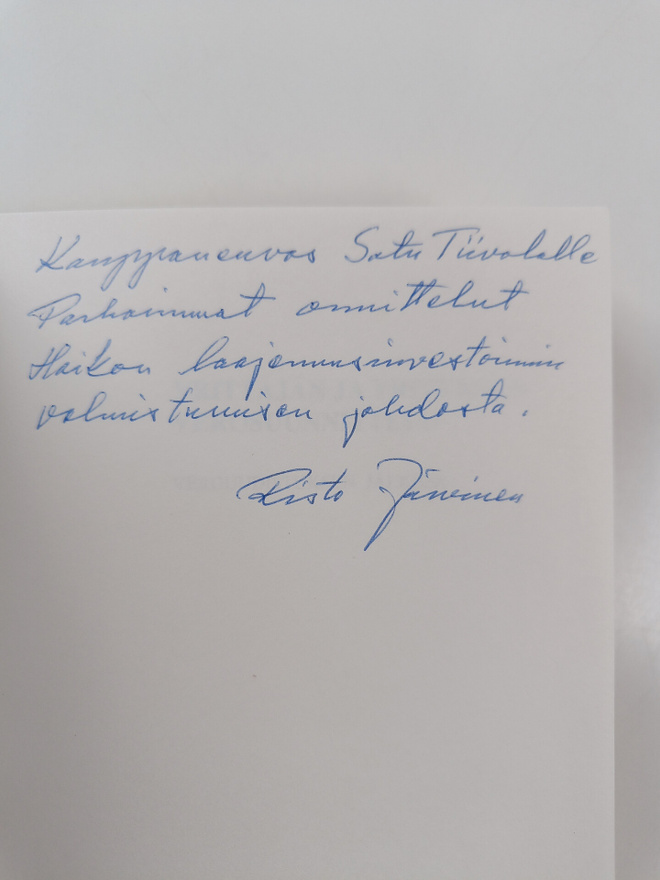 Kauppaneuvos Satu Tiivolalle
Parhaimmat onnittelut
Haikon laajennusinvestoinnin
valmistumisen johdosta.
Risto Järvinen